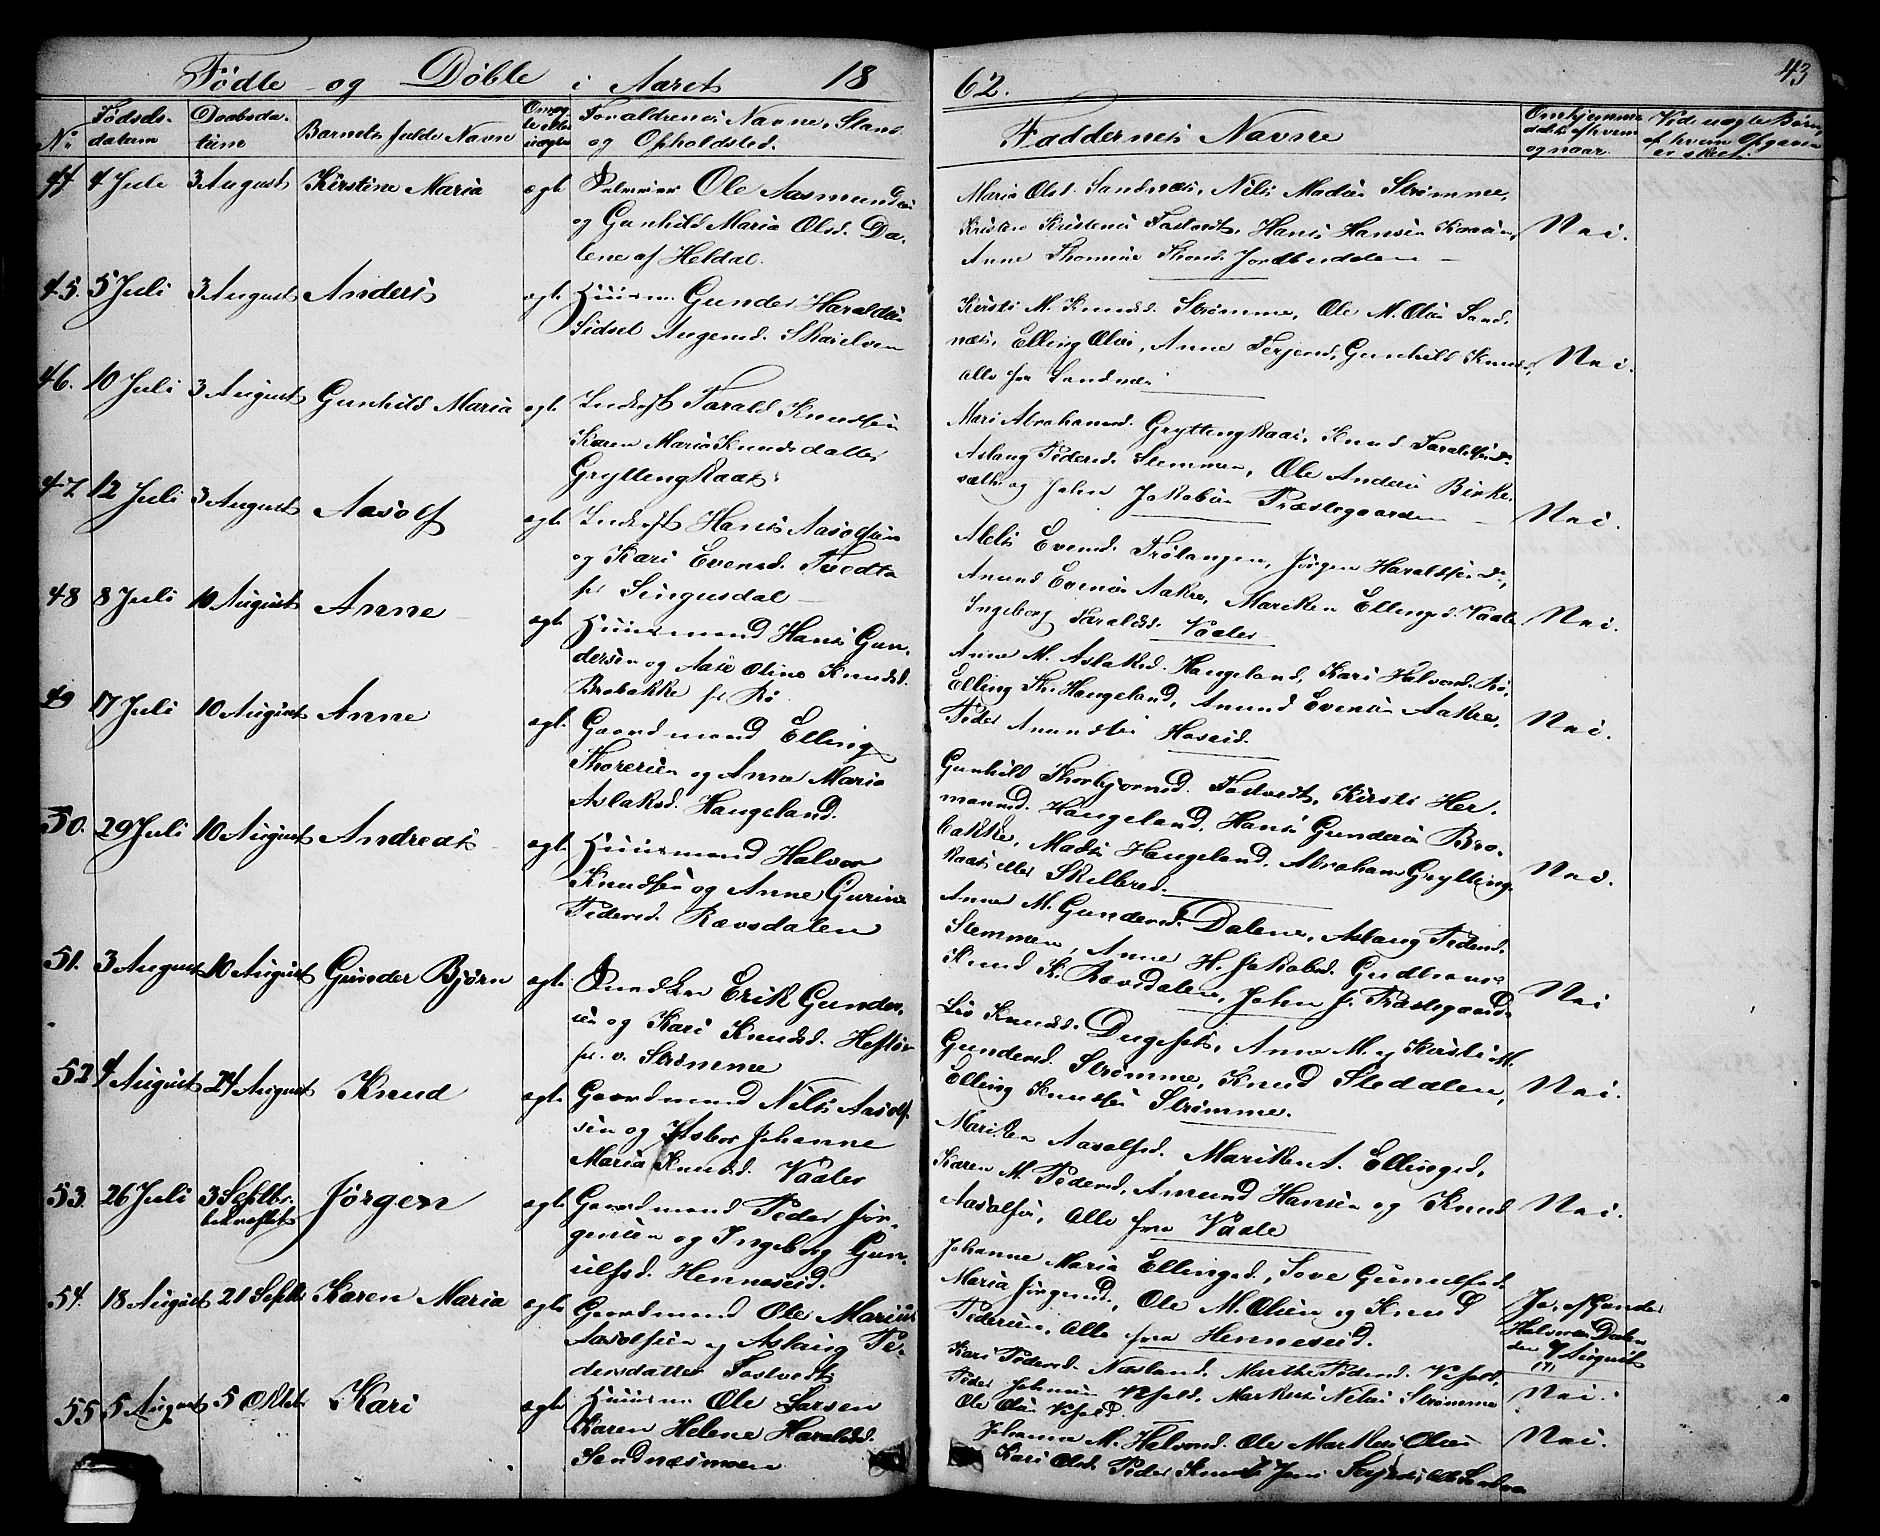 Födte og Döbte i Aaret 18
62.
43
No
Födsels-
datum
Daabsda-
tum
Barnets fulde Navn
Om æg-
te eller
uægte
Forældrenes Navne, Stand
og Opholdsted.
Faddernes Navne
Om hjemme
döbt, af hvem
og naar.
Ved uægte Börn,
af hvem Opgaven
er skeet.
44 4 Juli 3 August Kirstine Maria ægte Ole Aasmundsen
og Gunhild Maria Olsd. Da-
lene af Heldal.
Maria Olsd. Sandnæs, Nils Madsen Strömme,
Kristen Kristensen Tostvedt, Hans Hansen
Anne Jordbudalen
Nei.
45. 5 Juli 3 August Anders ægte Huusm. Gunder Haraldsen
Sidsel Aagesd. Skarelven
Kirsti M. Knudsd. Strömme, Ole M. Olsen Sand-
næs, Elling Olsen, Anne Terjesd., Gunhild Knudsd.
Alle fra Sandnæs
Nei.
46. 10 Juli 3 August Gunhild Maria ægte Inderst Tarald Knudsen
Karen Maria Knudsdatter
Gryttengkaas
Mari Abrahamsd. Gryttengkaas, Knud Taraldsen Do
Aslaug Pedersd. Stemmen, Ole Andersen Birke-
sælte og John Jakobsen Præstegaarden
Nei.
47. 12 Juli 3 August Aasolf ægte Inderst Hans Aasolfsen
og Kari Evensd. Tvedte
fr Singusdal
Alets Evensd. Trölangen, Jörgen Haraldsen Do,
Anund Evensen Aakre, Mariken Ellingsd. Vaale
Ingeborg Taraldsd. Vaaler
Nei.
48 8 Juli 10 August Anne ægte Huusmand Hans Gun-
dersen og Aase Oline Knudsd.
Brobakke fr Bö
Anne M. Aslaksd. Haugeland, Kari Halvorsd. Bö,
Elling Th. Haugeland, Anund Evensen Aakre,
Peder Anundsen Haseid.
Nei.
49 17 Juli 10 August Anne ægte. Gaardmand Elling
Thoresen og Anne Maria
Aslaksd. Haugeland.
Gunhild Thorbjörnsd. Tostvedt, Kirsti Her-
mansd. Haugeland, Hans Gundersen Bro-
bakke, Mads Haugeland, Abraham Grytting-
kaas eller Skilbred.
Nei.
50. 29 Juli 10 August Andreas ægte Huusmand Halvor
Knudsen og Anne Gurine
Pedersd. Rævsdalen
Anne M. Gundersd. Dalene, Aslaug Pedersd.
Stemmen, Anne H. Jakobsd. Gudbrands
Knud K. Rævsdalen, John J. Præstegaarden
Nei
51. 3 August 10 August Gunder Björn ægte Erik Gunder-
sen og Kari Knudsd. Heftör
fr. v. Strömme
Liv Knudsd. Dugsfet, Anne M. og Kirsti M.
Gundersd. Strömme, Knud Stedalen,
Elling Knudsen Strömme.
Nei.
52 4 August 24 August Knud ægte Gaardmand Nils Aasolf-
sen og Johanne
Maria Knudsd. Vaaler
Mariken Aasolfsd. Mariken A. Ellingsd,
Karen M. Pedersd, Amund Hansen og Knud
Aasolfsen, Alle fra Vaale
Nei.
53. 26 Juli 3 Septbr. Jörgen ægte Gaardmand Peder Jör-
bekræftet
gensen og Ingeborg Gun-
ulfsd. Henneseid.
Johanne Maria Ellingsd, Tove Gunnulfsd.
Maria Jörgensd., Ole M. Olsen og Knud
Pedersen, Alle fra Henneseid.
Ja, af Gunder
Halvorsen Dalen
den 7 August
54. 18 August 21 Septb. Karen Maria ægte Gaardmand Ole Marius
Aasolfsen og Aslaug Pe-
dersdatter Tostvedt
Kari Pedersd. Næsland, Marthe Pedersd. Vefald,
Peder Johnsen Vefald, Markus Nilsen Strömme
Ole Olsen Vefald
Nei.
55 5 August 5 Oktbr Kari ægte Huusm. Ole Larsen
Karen Helene Haraldsd.
Sandnæsmoen
Johanne M. Halvorsd. Ole Markus Olsen
Kari Olsd. Peder Knudsen Jens
Nei.